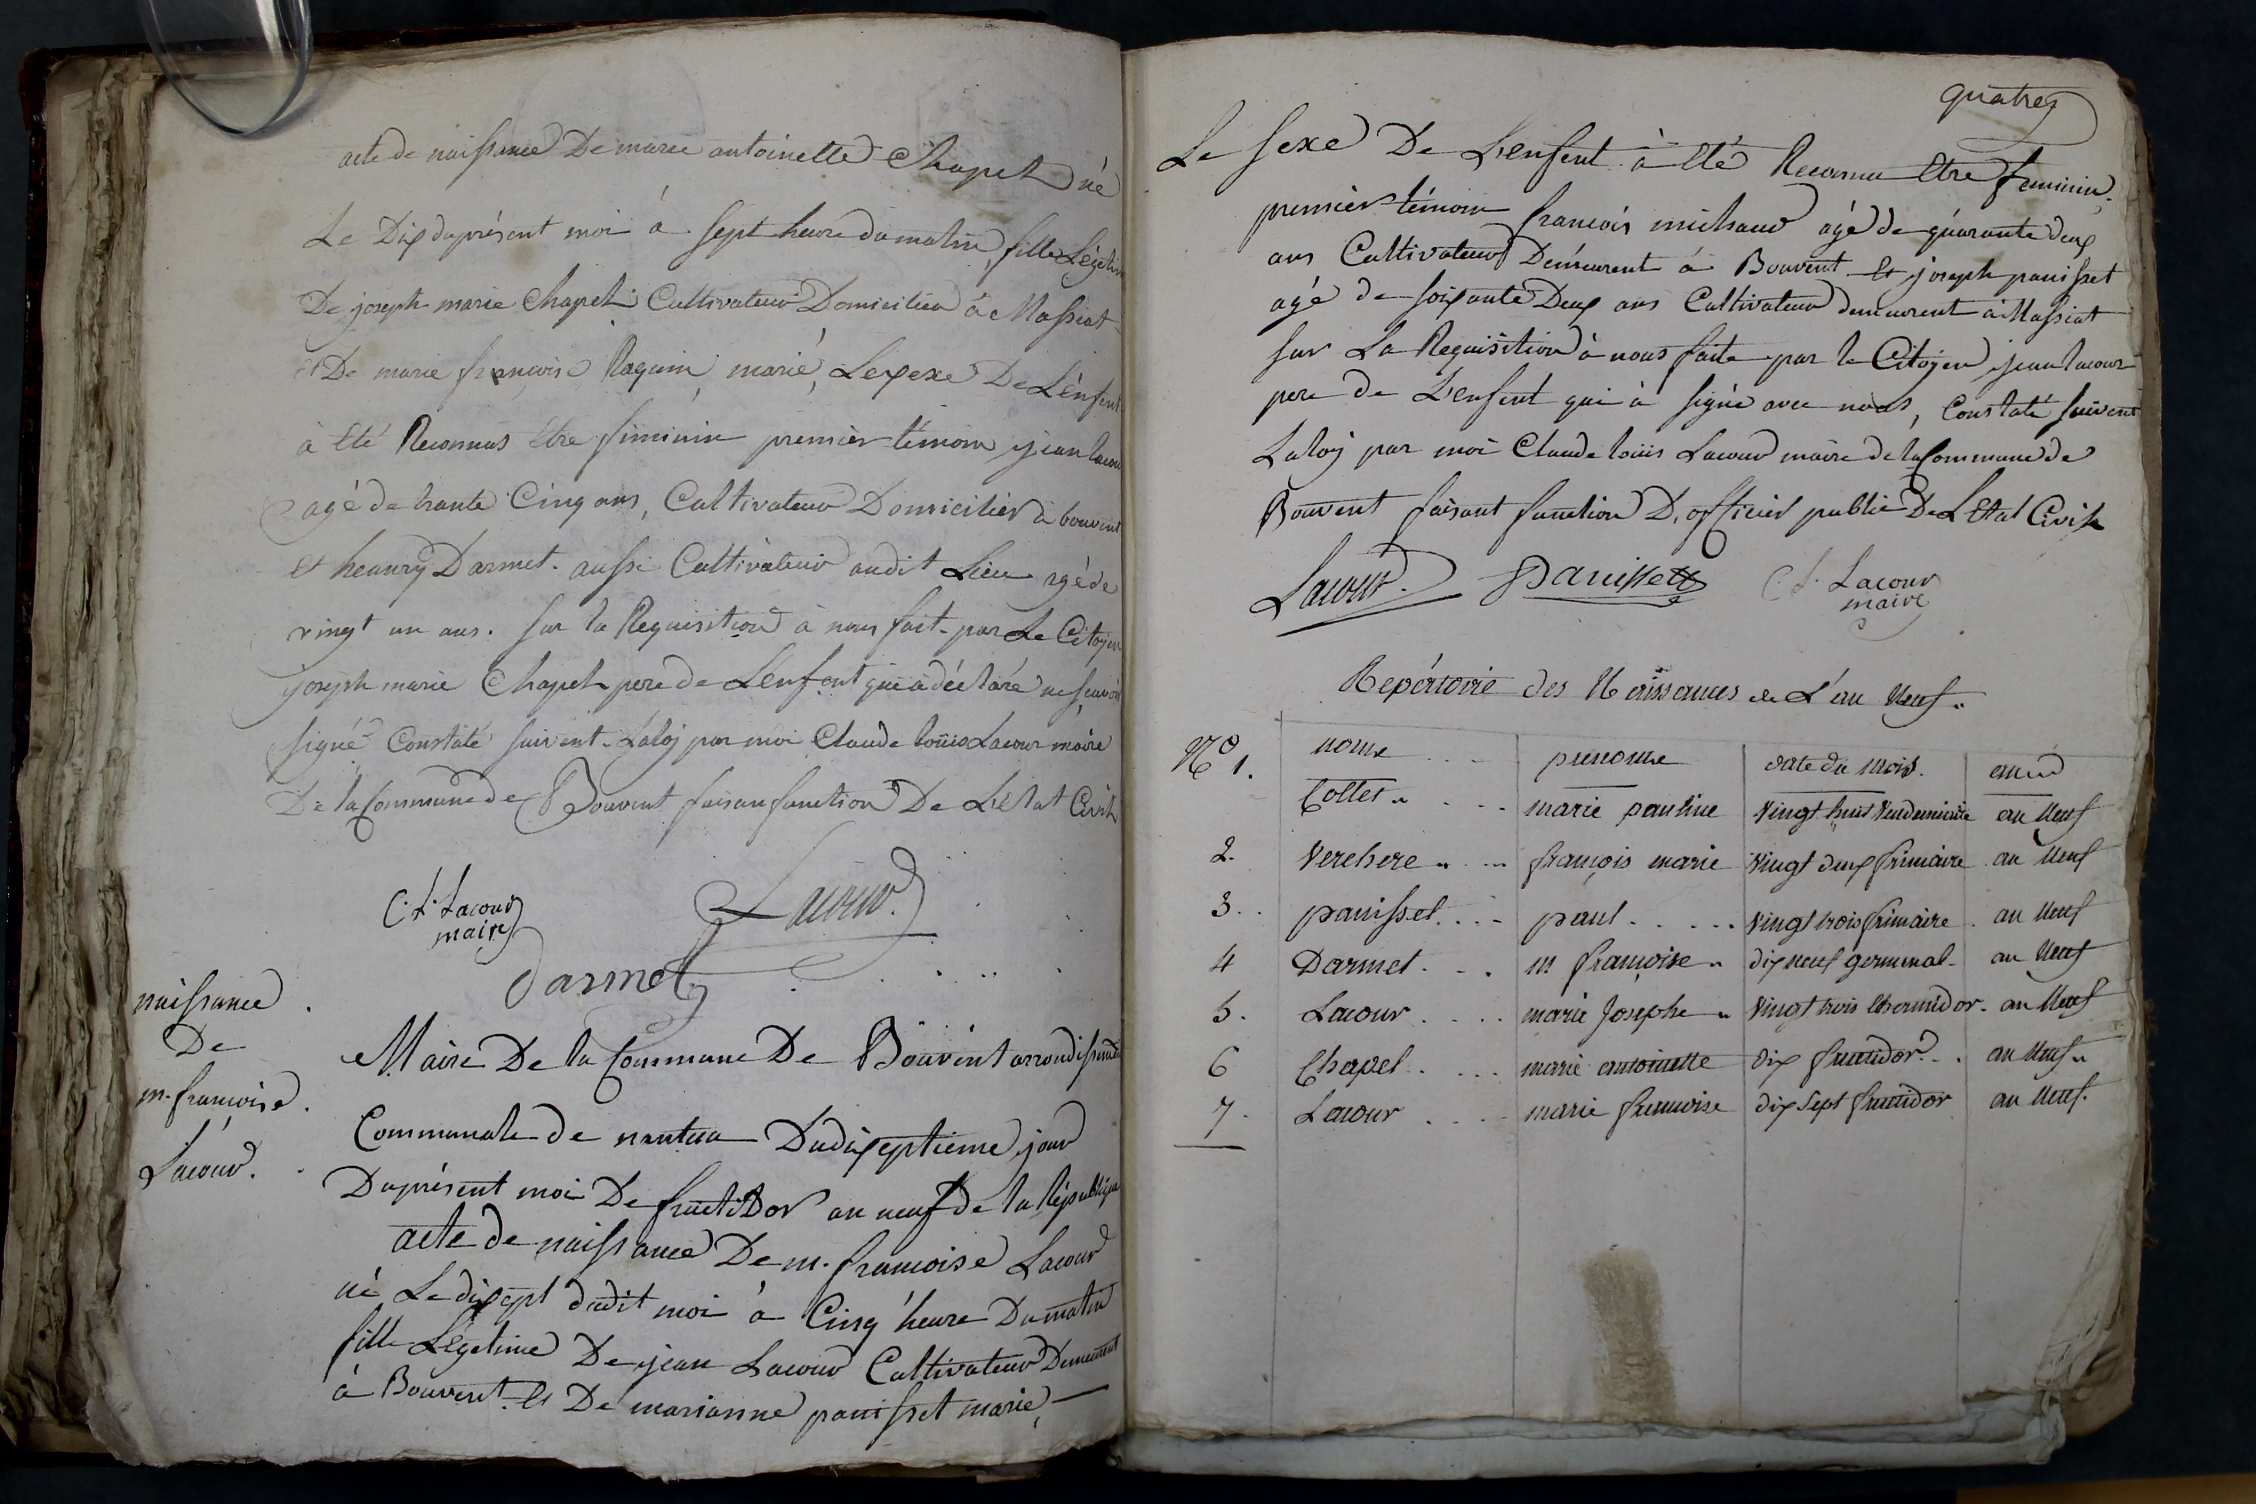 acte de naissance De marie antoinette Chapel né
Le Dix du présent moi à sept heure du matin, fille Légetime
De joseph marie Chapel Cultivateur Domicilier à Massiat
et De marie françoise Raguin, marié, Le sexe De L'enfent
à été Reconnus être féminin premièr témoin jean lacour
agé de trante Cinq ans, Cultivateur Domicilier à bouvent
et heanry Darmet. aussi Cultivateur audit Lieu agé de
vingt un ans. sur la Requisition à nous fait par Le Citoyen
joseph marie Chapel pere de L'enfent qui à déclaré ne scavoir
signé Constaté suivent La loy par moi Claude loüis Lacour maire
De la Commune de Bouvent faisan function De L'Etat Civil
C. L. Lacour
maire
Lacour
Darmet
naissance
De
m. françoise
Lacour.
Maire De la Commune De Bouvent arrondissement
Communale de nantua Du dixseptieme jour
Du présent moi De fructidor an neuf De la République
acte de naissance De m. francoise Lacour
né Le dixsept dudit moi à Cinq heure Du matin
fille Légetime De jean Lacour Cultivateur Demeurent
à Bouvent Et De marianne panisset marié,
quatre
Le sexe De L'enfent à été Reconnu être feminin,
premièr témoin francois michaud agé de quarante deux
ans Cultivateur Demeurent à Bouvent Et joseph panisset
agé de soixante Deux ans Cultivateur demeurent à Massiat
sur La Requisition à nous faite par le Citoyen jean lacour
pere de L'enfent qui à signé avec nous, Constaté suivent
La loy par moi Claude loüis Lacour maire de la Commune de
Bouvent faisant function D'officier public De L'Etat Civil
Lacour. Panisset C. L. Lacour
maire
Repértoire des Naissances de L'an Neuf
No nome prenome date du mois. année
1. Collet marie pauline vingt huit vendemiaire an Neuf
2. Verchere françois marie vingt deux frimaire an Neuf
3. panisset paul vingt trois frimaire an Neuf
4 Darmet m françoise dix neuf germinal an Neuf
5. Lacour marie Josephe vingt trois thermidor an Neuf
6 Chapel marie antoinette dix fructidor an Neuf
7. Lacour marie françoise dix sept fructidor an Neuf.